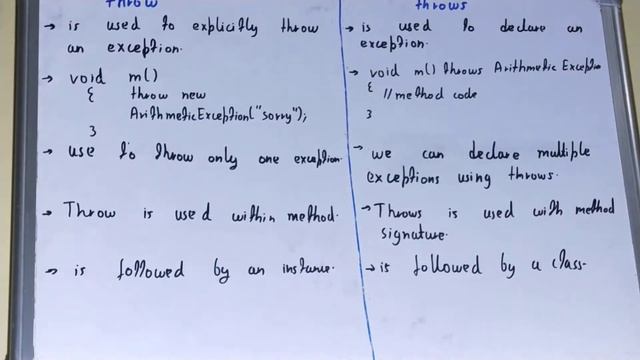 throw
→ is used to explicitly throw
an exception.
→ void m()
{ throw new
ArithmeticException("sorry");
}
→ use to throw only one exception.
→ Throw is used within method.
→ is followed by an instance.
throws
→ is used to declare an
exception.
→ void m() throws Arithmetic Exceptio
{ //method code
}
→ we can declare multiple
exceptions using throws.
→ Throws is used with method
signature.
→ is followed by a class.